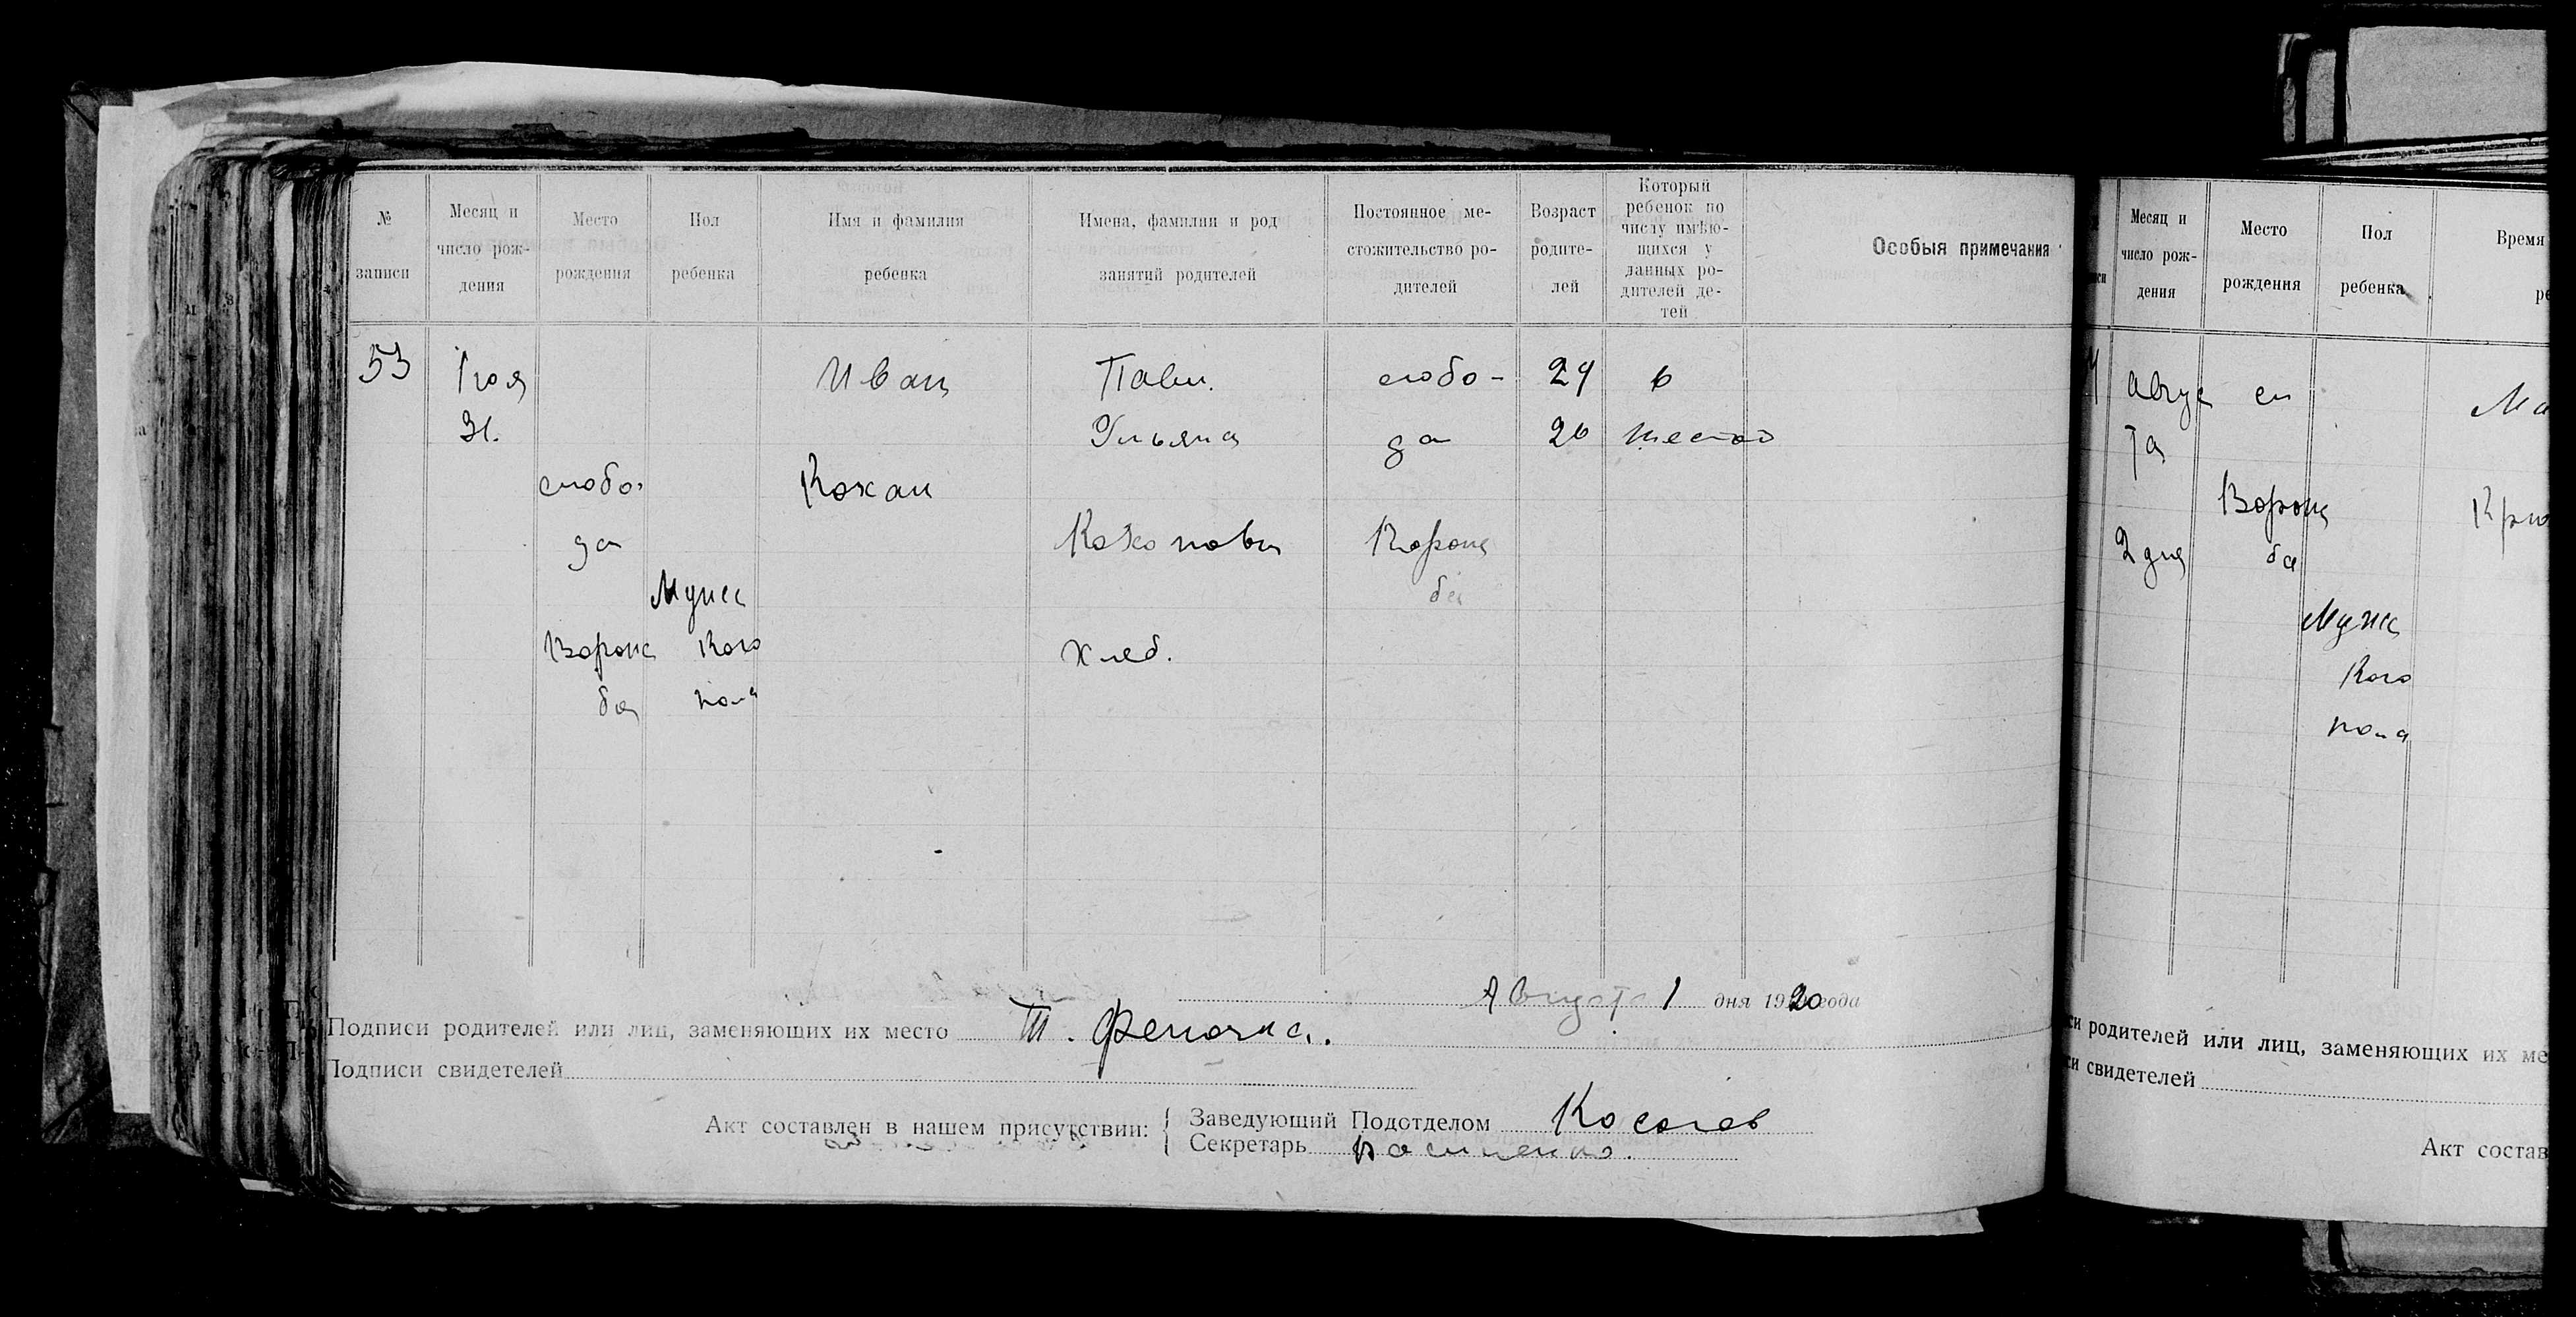 № записи
Месяц и число рождения
Место рождения
Пол ребенка
Имя и фамилия ребенка
Имена, фамилии и род занятий родителей
Постоянное местожительство родителей
Возраст родителей
Который ребенок по числу имѣющихся у данных родителей детей
Особыя примечания
53
Июля
31.
слобо-
да
Ворона
ба
Мужс
кого
пола
Иван
Кохан
Павл.
Ульяна
Кохановы
Хлеб.
слобо-
да
Ворона
ба
29
26
6
шестой
Августа 1 дня 1920 года
Подписи родителей или лиц, заменяющих их место
Подписи свидетелей
Акт составлен в нашем присутствии:
Заведующий Подотделом
Секретарь
Месяц и число рождения
Место рождения
Пол ребенка
Время
авгус
та
2 дня
сл
Ворона
ба
Мужс
кого
пола
родителей или лиц, заменяющих их ме
свидетелей
Акт состав